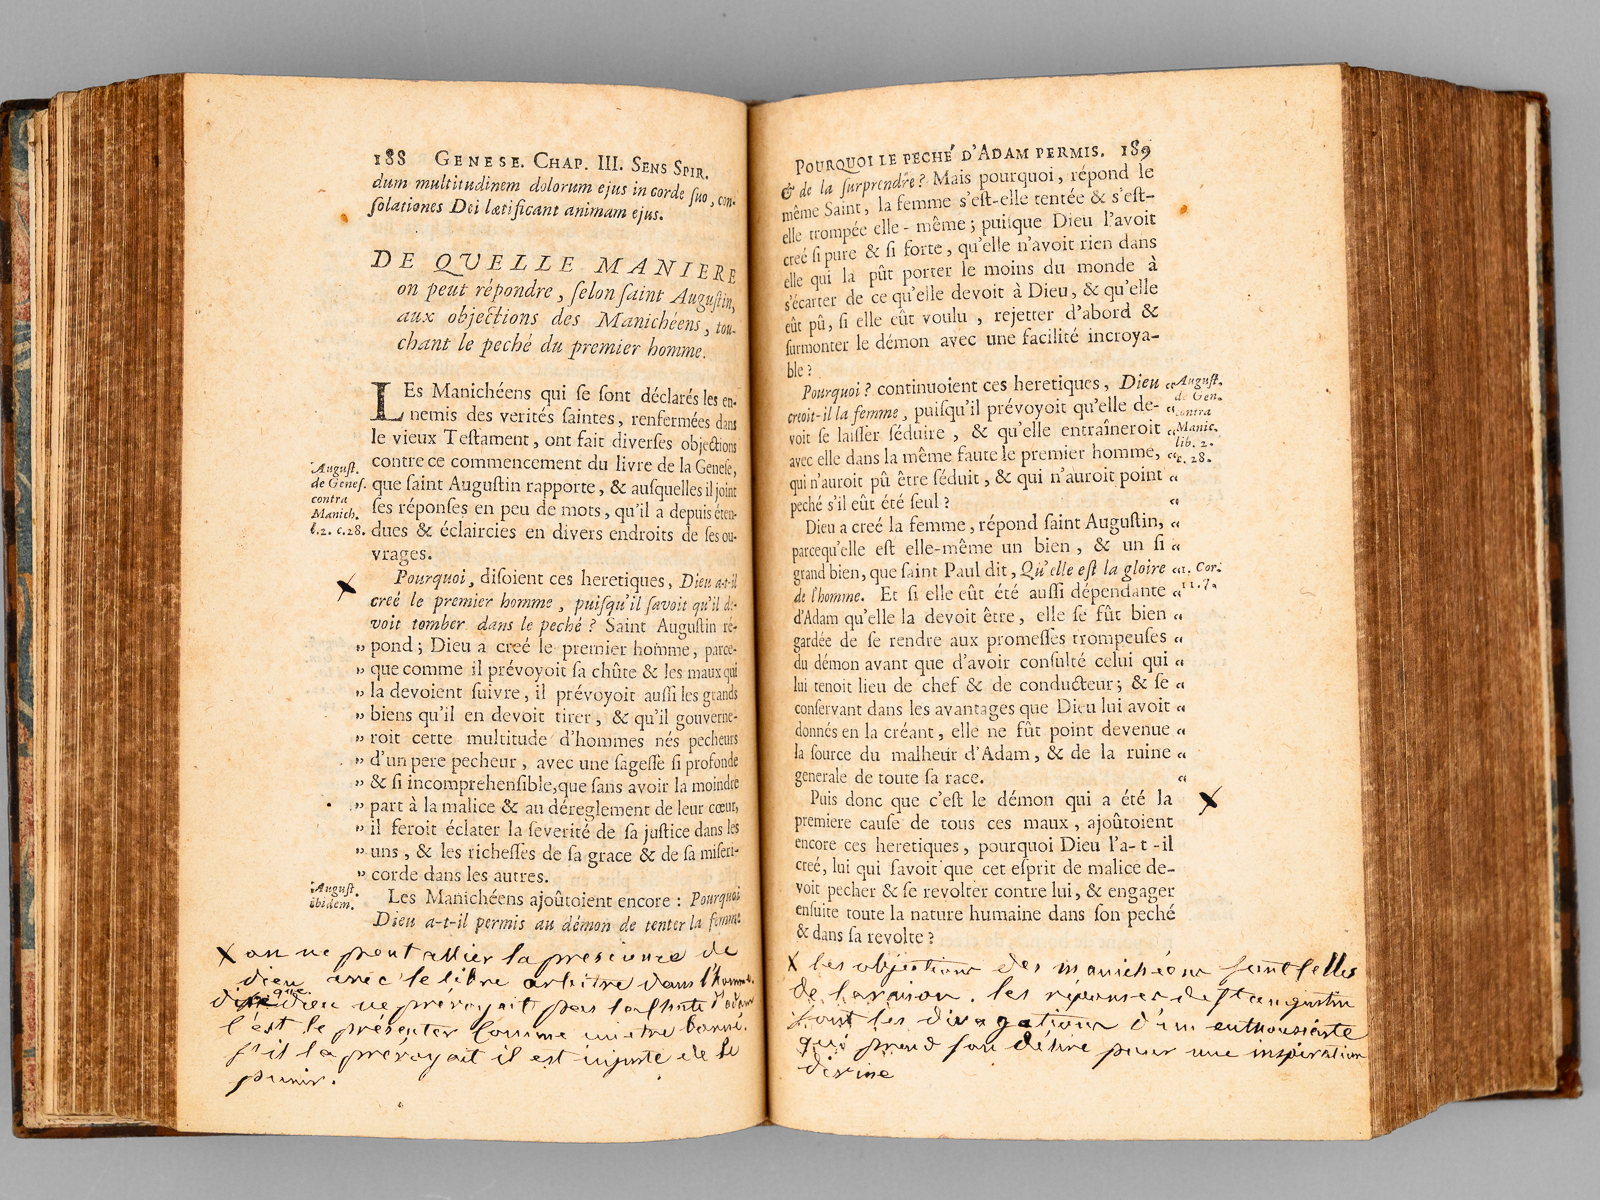 188 GENESE. CHAP. III. SENS SPIR.
dum multitudinem dolorum ejus in corde suo, con-
solationes Dei lætificant animam ejus.
DE QUELLE MANIERE
on peut répondre, selon saint Augustin,
aux objections des Manichéens, tou-
chant le peché du premier homme.
LEs Manichéens qui se sont déclarés les en-
nemis des verités saintes, renfermées dans
le vieux Testament, ont fait diverses objections
contre ce commencement du livre de la Genese,
que saint Augustin rapporte, & ausquelles il joint
ses réponses en peu de mots, qu'il a depuis éten-
dues & éclaircies en divers endroits de ses ou-
vrages.
August.
de Genes.
contra
Manich.
l.2. c.28.
Pourquoi, disoient ces heretiques, Dieu a-t-il
creé le premier homme, puisqu'il savoit qu'il de-
voit tomber dans le peché ? Saint Augustin ré-
» pond ; Dieu a creé le premier homme, parce-
» que comme il prévoyoit sa chûte & les maux qui
» la devoient suivre, il prévoyoit aussi les grands
» biens qu'il en devoit tirer, & qu'il gouverne-
» roit cette multitude d'hommes nés pecheurs
» d'un pere pecheur, avec une sagesse si profonde
» & si incomprehensible, que sans avoir la moindre
» part à la malice & au déreglement de leur cœur,
» il feroit éclater la severité de sa justice dans les
» uns, & les richesses de sa grace & de sa miseri-
» corde dans les autres.
August.
ibidem.
Les Manichéens ajoûtoient encore : Pourquoi
Dieu a-t-il permis au démon de tenter la femme
X on ne peut allier la prescience de
dieu avec le libre arbitre dans l'homme.
dire que dieu ne prevoyait pas la chute d'adam
c'est le présenter comme un etre borné.
s'il la prévoyait il est injuste de le
punir.
POURQUOI LE PECHÉ D'ADAM PERMIS. 189
& de la surprendre ? Mais pourquoi, répond le
même Saint, la femme s'est-elle tentée & s'est-
elle trompée elle-même ; puisque Dieu l'avoit
creé si pure & si forte, qu'elle n'avoit rien dans
elle qui la pût porter le moins du monde à
s'écarter de ce qu'elle devoit à Dieu, & qu'elle
eût pû, si elle eût voulu, rejetter d'abord &
surmonter le démon avec une facilité incroya-
ble ?
Pourquoi ? continuoient ces heretiques, Dieu «
creoit-il la femme, puisqu'il prévoyoit qu'elle de- «
voit se laisser séduire, & qu'elle entraîneroit «
avec elle dans la même faute le premier homme, «
qui n'auroit pû être séduit, & qui n'auroit point «
peché s'il eût été seul ? «
August.
de Gen.
contra
Manic.
lib. 2.
c. 28.
Dieu a creé la femme, répond saint Augustin, «
parcequ'elle est elle-même un bien, & un si «
grand bien, que saint Paul dit, Qu'elle est la gloire «
de l'homme. Et si elle eût été aussi dépendante «
d'Adam qu'elle la devoit être, elle se fût bien «
gardée de se rendre aux promesses trompeuses «
du démon avant que d'avoir consulté celui qui «
lui tenoit lieu de chef & de conducteur ; & se «
conservant dans les avantages que Dieu lui avoit «
donnés en la créant, elle ne fût point devenue «
la source du malheur d'Adam, & de la ruine «
generale de toute sa race. «
1. Cor.
11. 7.
Puis donc que c'est le démon qui a été la
premiere cause de tous ces maux, ajoûtoient
encore ces heretiques, pourquoi Dieu l'a-t-il
creé, lui qui savoit que cet esprit de malice de-
voit pecher & se revolter contre lui, & engager
ensuite toute la nature humaine dans son peché
& dans sa revolte ?
X les objections des manichéens sont celles
de la raison. les réponses de st augustin
sont les divagations d'un enthousiaste
qui prend son délire pour une inspiration
divine